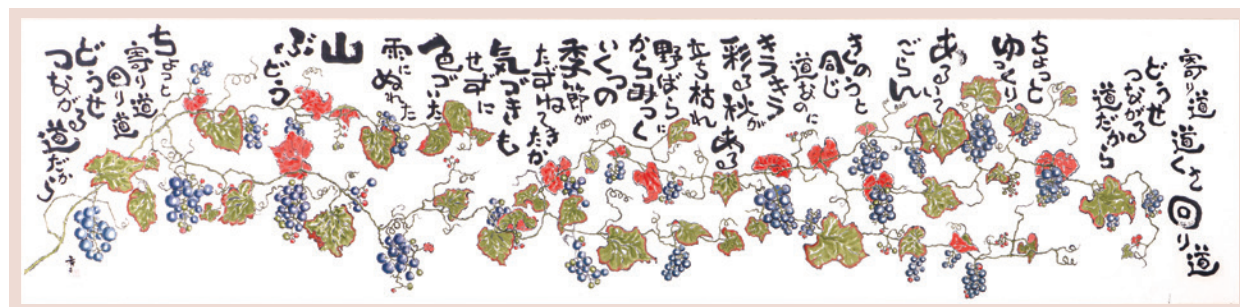 寄り道 道くさ 回り道
どうせ
つながる
道だから
ちょっと
ゆっくり
あるいて
ごらん
きのうと
同じ
道なのに
キラキラ
彩る秋がある
立ち枯れ
野ばらに
からみつく
いくつの
季節が
たずねてきたか
気づきも
せずに
色づいた
雨にぬれた
山
ぶどう
ちょっと
寄り道
回り道
どうせ
つながる 道だから